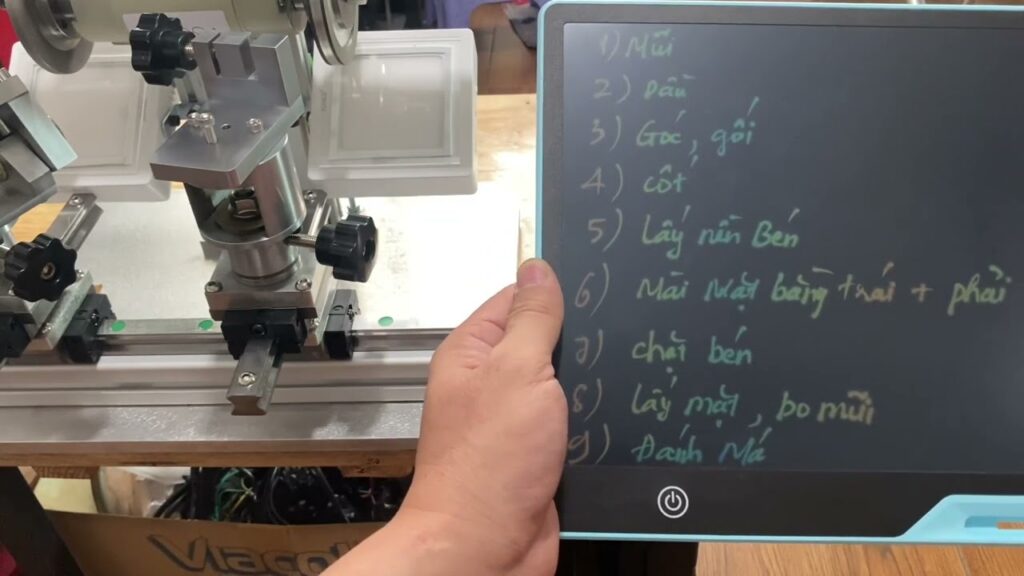 1) Mũi
2) Dầu
3) Góc, gối
4) cốt
5) Lấy nền Bén
6) Mài Mặt bằng trái + phải
7) chặt bén
8) Lấy mặt, bo mũi
9) Đánh Má
Viacol